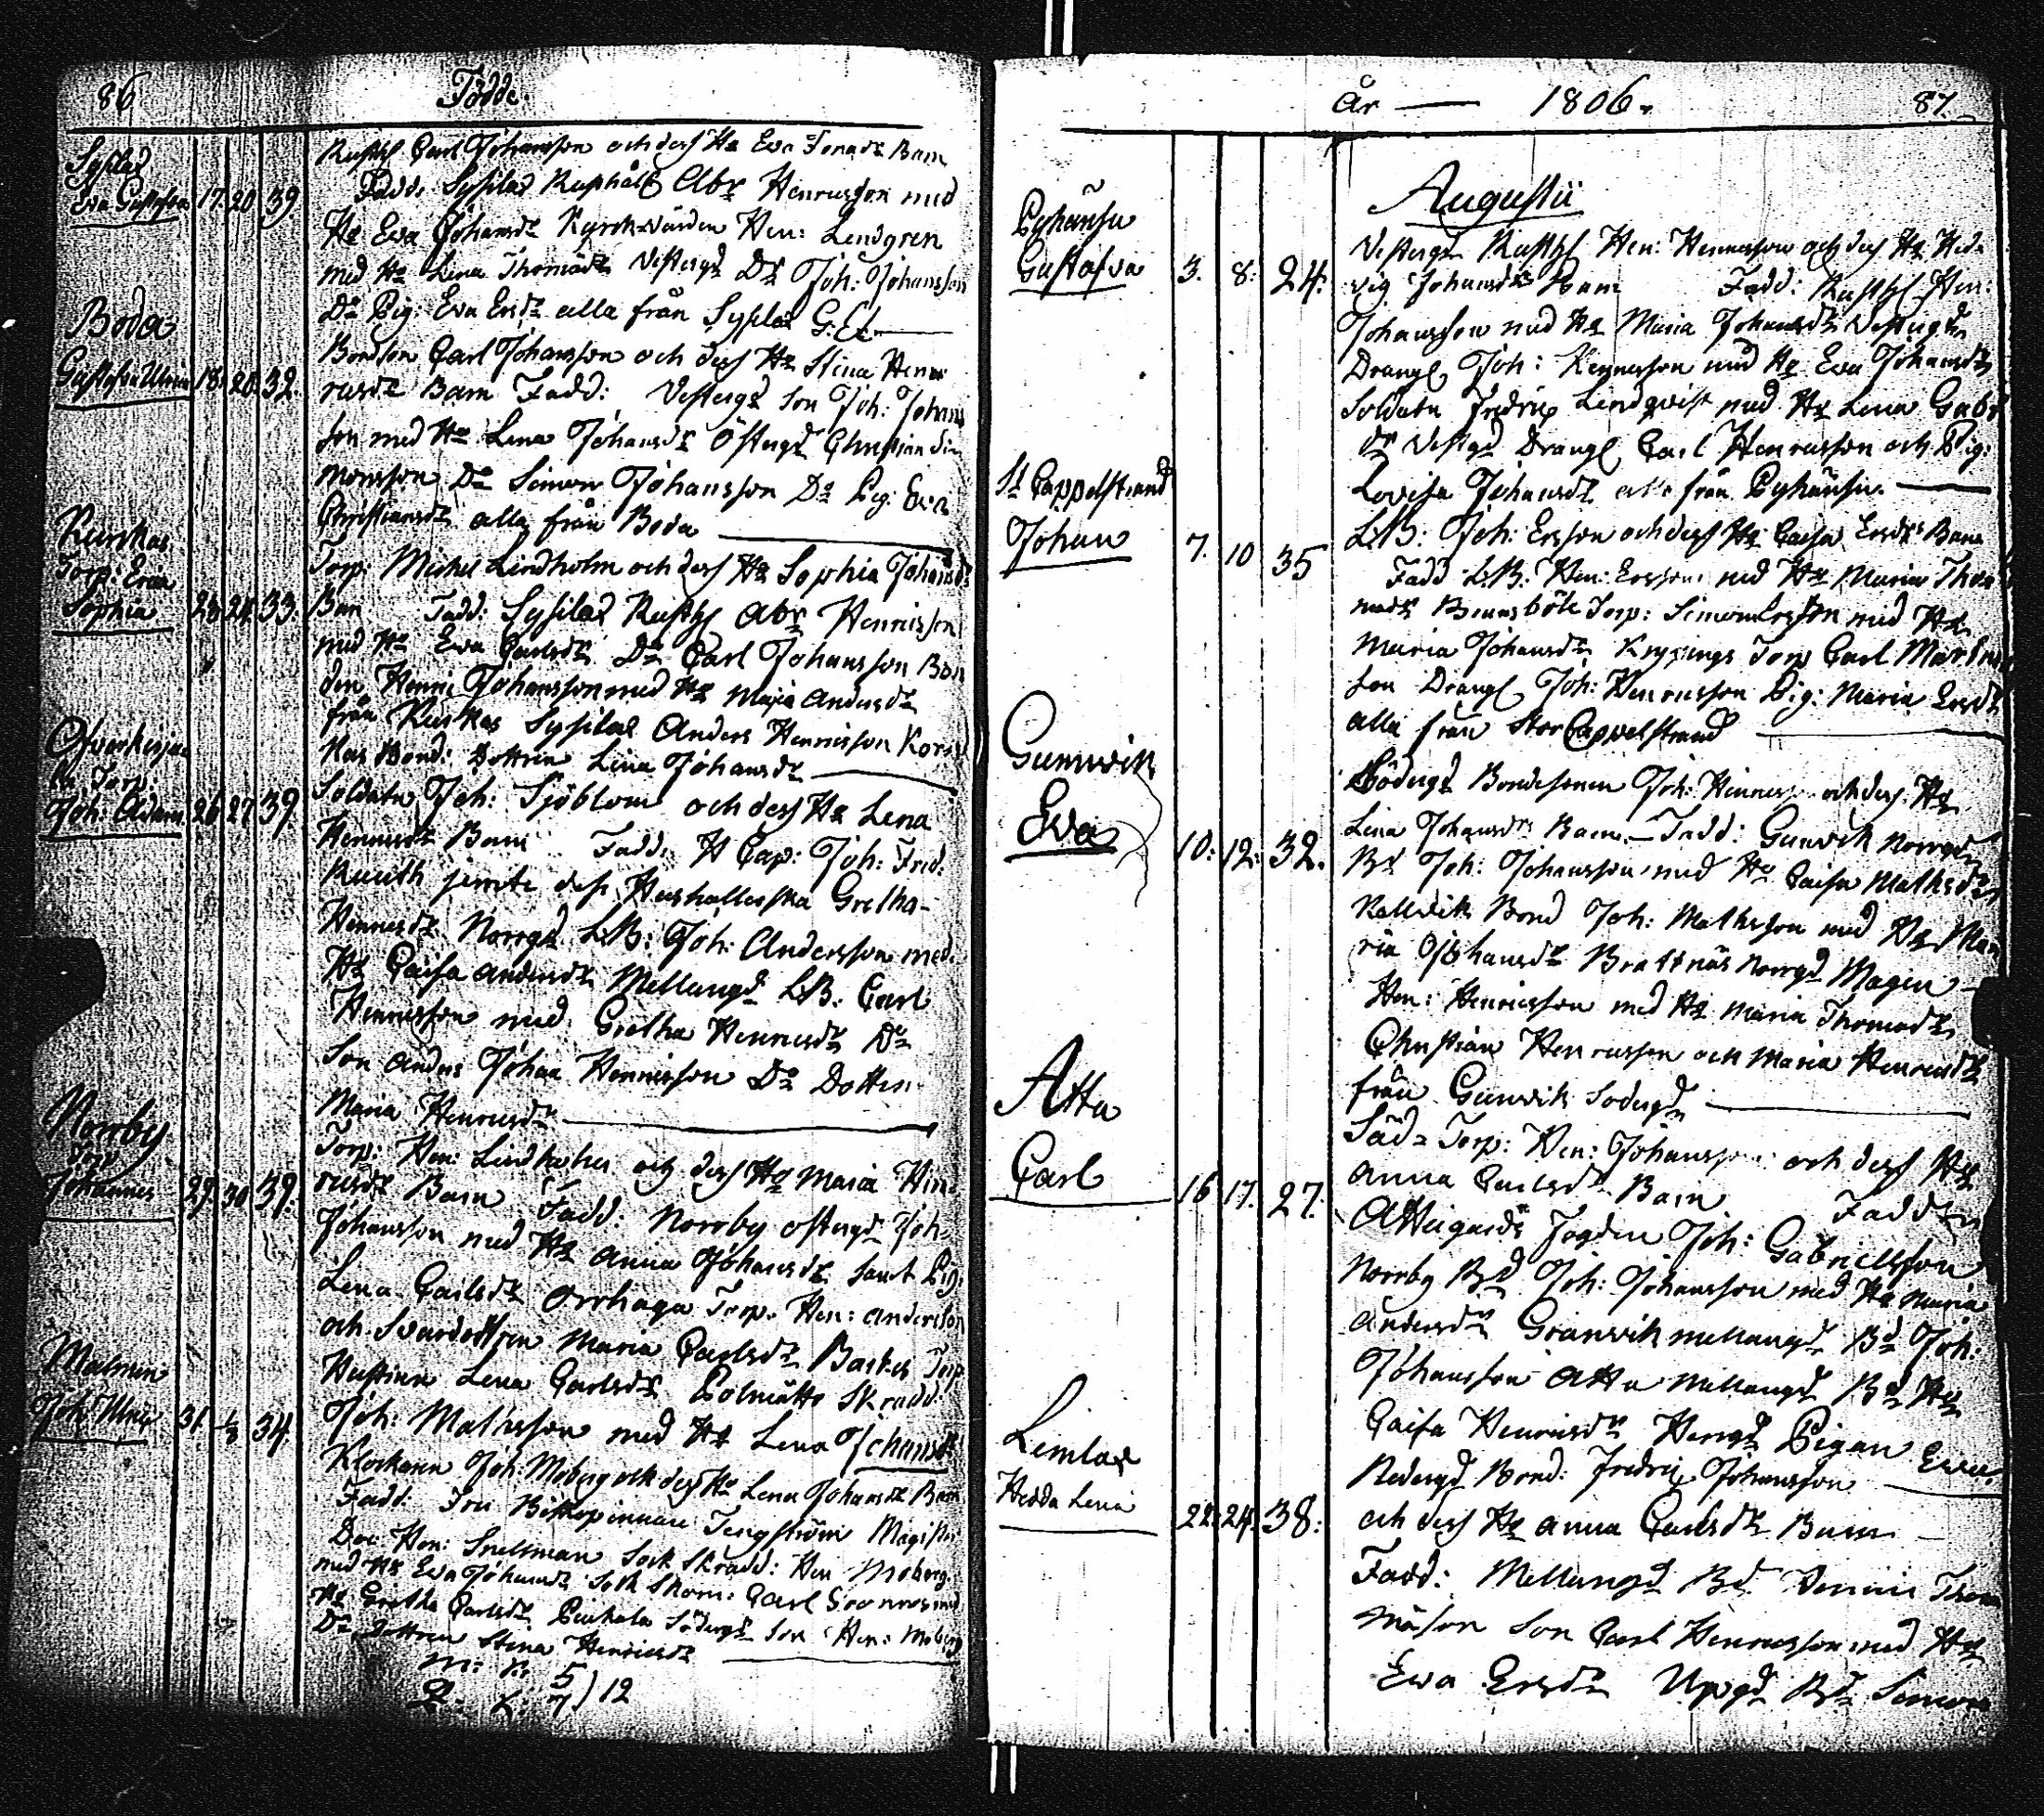 86
Födde.
Sysilax
Eva Gustafva 17. 20 39
Rusth Carl Johansson och dess H Eva Barn
Fadd. Sysilax Abr Henricsson med
H Eva Johansdr Hen: Lindgren
med Hu Lena Thomasdr Vesterg Dr Joh: Johansson
Do Pig: Eva Ersdr alla från Sysilax
Boda
Gustafva Ulrica 18. 20. 32.
Bondson Carl Johansson och dess Hu Stina Hen
ricsdr Barn Fadd: Vestergd Son Joh: Johans
son med Hu Lena Johansdr Östergd Christian Si
monsson Do Simon Johansson Do Pig: Eva
Christiansdr alla från Boda
Kurckas
Torp: Erica
Sophia 23. 24. 33.
Torp: Michel Lindholm och dess Hu Sophia Johansdr
Barn Fadd: Sysilax Rusth Abr Henricsson
med Hu Eva Carlsdr Do Carl Johansson Bon
den Henric Johansson med Hu Maja Andersdr
från Kurckas Sysilax Anders Henricsson
Bond: Dottren Lena Johansdr
Torp:
Joh: Adam. 26 27 39.
Soldaten Joh: Sjöblom och dess Hu Lena
Henricsdr Barn Fadd. H Cap: Joh: Fred:
Ruuth jemte dess Hushållerska Gretha
Henricsdr Norrgd LB: Joh: Andersson med
Hu Caisa Andersdr Mellangd LB: Carl
Henricsson med Gretha Henricsdr Do
Son Anders Johan Henricsson Do Dottren
Maria Henricsdr
Norrby
Torp
Johannes 29. 30 39.
Torp: Hen: Lindholm och dess Hu Maria Hen
ricsdr Barn Fadd: Norrby Östergd Joh:
Johansson med Hu Anna Johansdr samt Pig:
Lena Carlsdr Orrhaga Torp. Hen: Andersson
och Svärdottren Maria Carlsdr Torp
Hustrun Lena Carlsdr Skradd:
Joh: Mathsson med Hu Lena Johansdr
Malmen
Joh: Ulric 31. 34.
Klockaren Joh: Moberg och dess Hu Lena Johansdr Barn
Fadd: Fru Biskopinnan Tengström Magister
Doc: Hen: Snellman Sock Skradd: Hen Moberg
med Hu Eva Johansdr Sock Skom: Carl med
Hu Gretha Carlsdr Södergd Son Hen: Moberg
Do Dottren Stina Henricsdr
m: k: 5
Q: k: 7) 12
År — 1806. 87.
Augustii
Pyhänsu
Gustafva 3. 8. 24.
Vestergd Rusth Hen: Henricsson och dess Hu Hed
vig Johansdr Barn Fadd: Rusth Hen:
Johansson med Hu Maria Johansdr Vestergd
Drängl Joh: Henricsson med Hu Eva Johansdr
Soldaten Fredric Lindqvist med Hu Lena Gabr
dr Vestgd Drängl Carl Henricsson och Pig:
Lovisa Johansdr alla från Pyhänsu.
St Cappelstrand
Johan 7. 10 35
LB: Joh: Ersson och dess Hu Caisa Ersdr Barn
Fadd LB: Hen: Ersson med Hu Maria Tho
masdr Brunsböle Torp: Simon Ersson med Hu
Maria Johansdr Torp Carl Martens
son Drängl Joh: Henricsson Pig: Maria Ersdr
alla från Stor Cappelstrand
Gunnvik
Eva 10: 12. 32.
Södergd Bondesonen Joh: Henricss och dess Hu
Lena Johansdr Barn. Fadd: Gunvik Norrgd
Bd Joh: Johansson med Hu Caisa Mathsdr
Kallvik Bond Joh: Mathsson med Hu Ma
ria Johansdr Brattnäs Norrgd Magen
Hen: Henricsson med Hu Maria Thomasdr
Christian Henricsson och Maria Henricsdr
från Gunvik Södergd
Atta
Carl 16 17. 27.
Säd- Torp: Hen: Johansson och dess Hu
Anna Carlsdr Barn Fadd
Attugårds Fogden Joh: Gabrielsson
Norrby Bd Joh: Johansson med Hu Maria
Andersdr Granvik Mellangd Bd Joh:
Johansson Attu Mellangd Bd Hu
Caisa Henricsdr Herrgd Pigan Eva
Limlax
Hedda Lena 22. 24. 38:
Nedergd Bond: Fredric Johansson
och dess Hu Anna Carlsdr Barn
Fadd: Mellangd Bd Henric Thom
masson Son Carl Henricsson med Hu
Eva Ersdr Uppgd Bd Simon